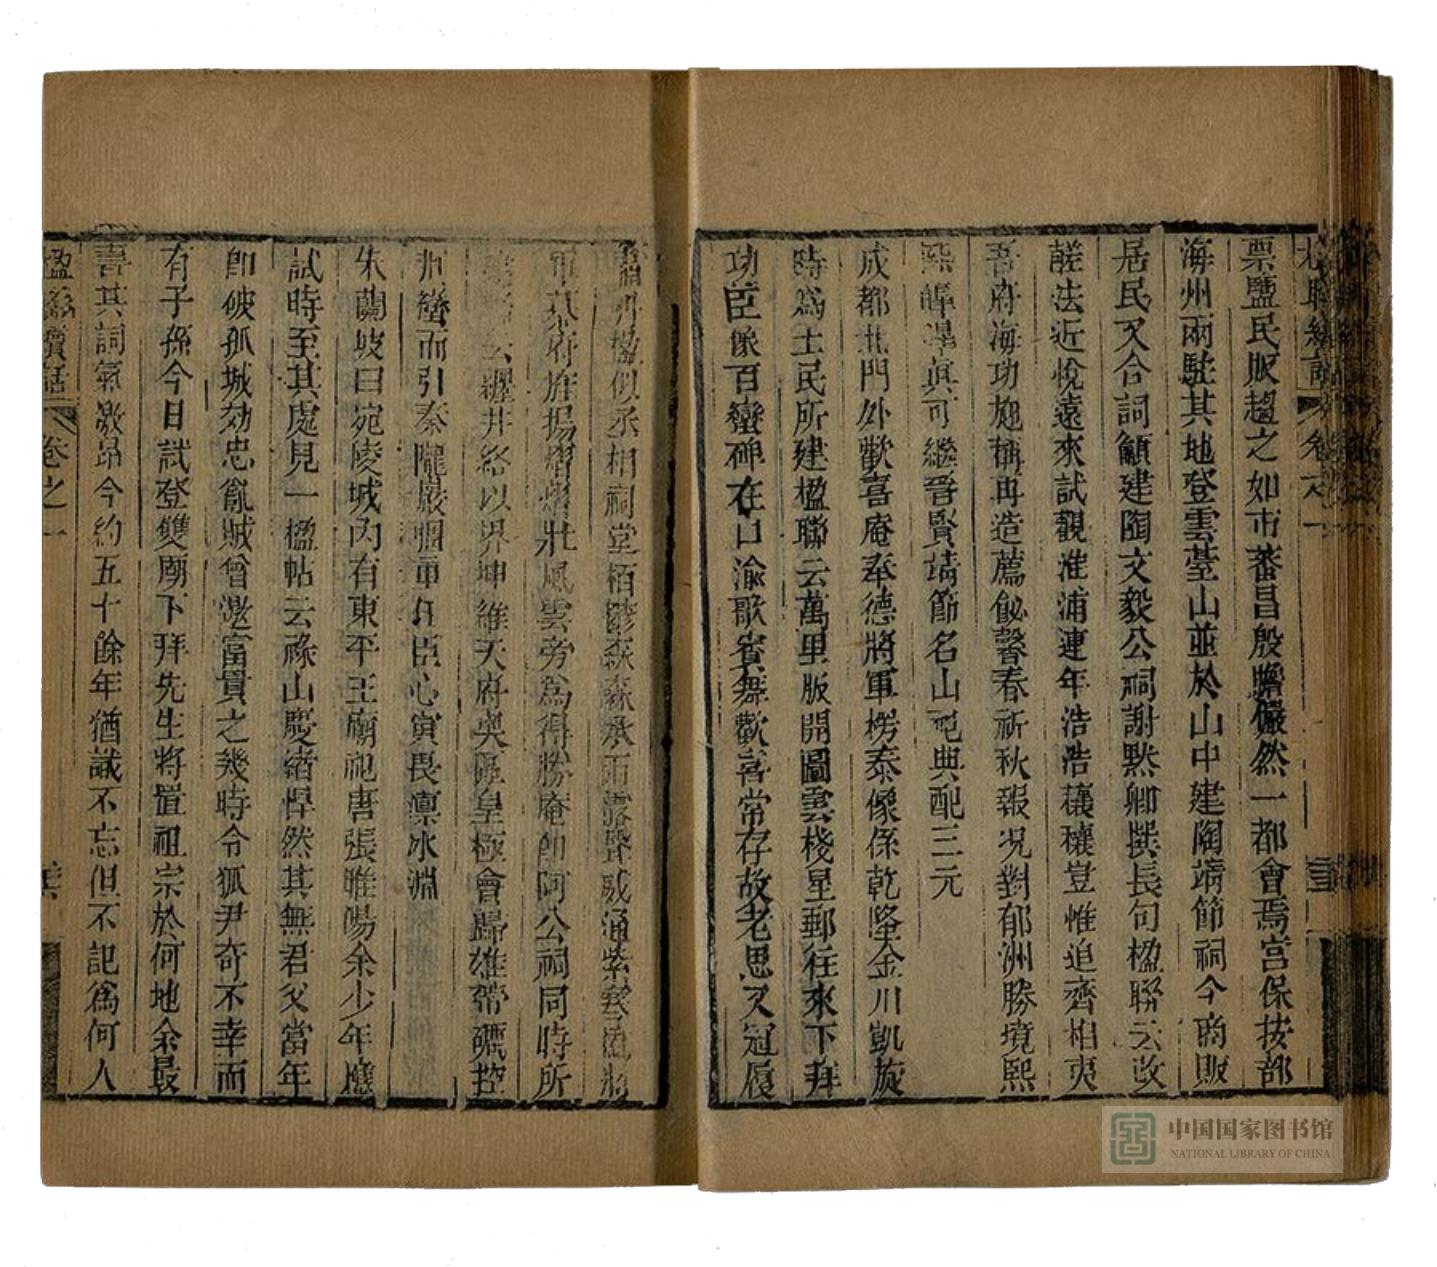 票鹽民販趨之如市蕃昌殷賑儼然一都會焉宮保按部
海州兩駐其地登雲臺山並於山中建陶靖節祠今商販
居民又合詞籲建陶文毅公祠謝默卿撰長句楹聯云改
鹺法近悅遠來試觀淮浦連年浩浩穰穰豈惟追齊相夷
吾府海功施稱再造薦飶馨春祈秋報况對郁洲勝境熙
熙皡皡真可繼晉賢靖節名山祀典配三元
成都北門外歡喜庵奉德將軍楞泰像係乾隆金川凱旋
時爲土民所建楹聯云萬里版開圖雲棧星郵往來下拜
功臣像百蠻碑在口渝歌賓舞歡喜常存故老思又冠履
楹似丞相祠堂栢陰森森承雨露聲威通紫塞
軍幕府旌揚熠熠壯風雲旁爲得勝庵卽阿公祠同時所
云纒井絡以界坤維天府奧區皇極會歸雄帶礪控
荆蠻而引秦隴嚴疆重任臣心寅畏凜冰淵
朱蘭坡曰宛陵城內有東平王廟祀唐張睢陽余少年應
試時至其處見一楹帖云祿山慶緒悍然其無君父當年
卽破孤城効忠氤賊曾邀富貴之幾時令狐尹奇不幸而
有子孫今日試登雙廟下拜先生將置祖宗於何地余最
喜其詞氣激昂今約五十餘年猶識不忘但不記爲何人
楹聯續話 卷之一
中国国家图书馆
NATIONAL LIBRARY OF CHINA